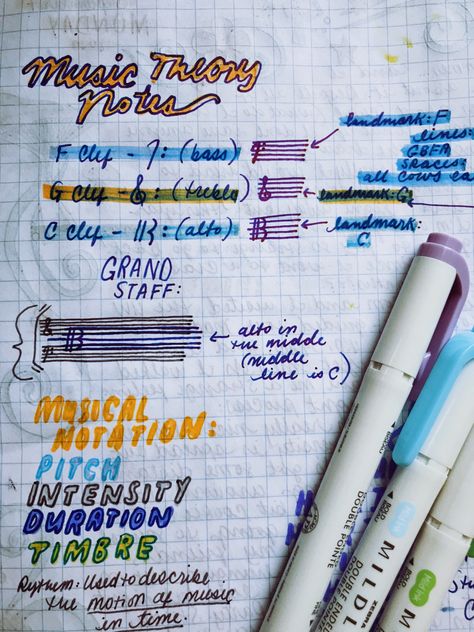 Music Theory
Notes
F Clef - 𝄢: (bass)
landmark: F
lines:
GBFA
spaces:
all cows ea
G Clef - 𝄞: (treble)
landmark: G
C Clef - 𝄡: (alto)
landmark:
C
GRAND
STAFF:
alto in
the middle
(middle
line is C)
MUSICAL
NOTATION:
PITCH
INTENSITY
DURATION
TIMBRE
Rythem: Used to describe
the motion of music
in time.
MILDL
ZEBRA
DOUBLE ENDED
DOUBLE POINTE